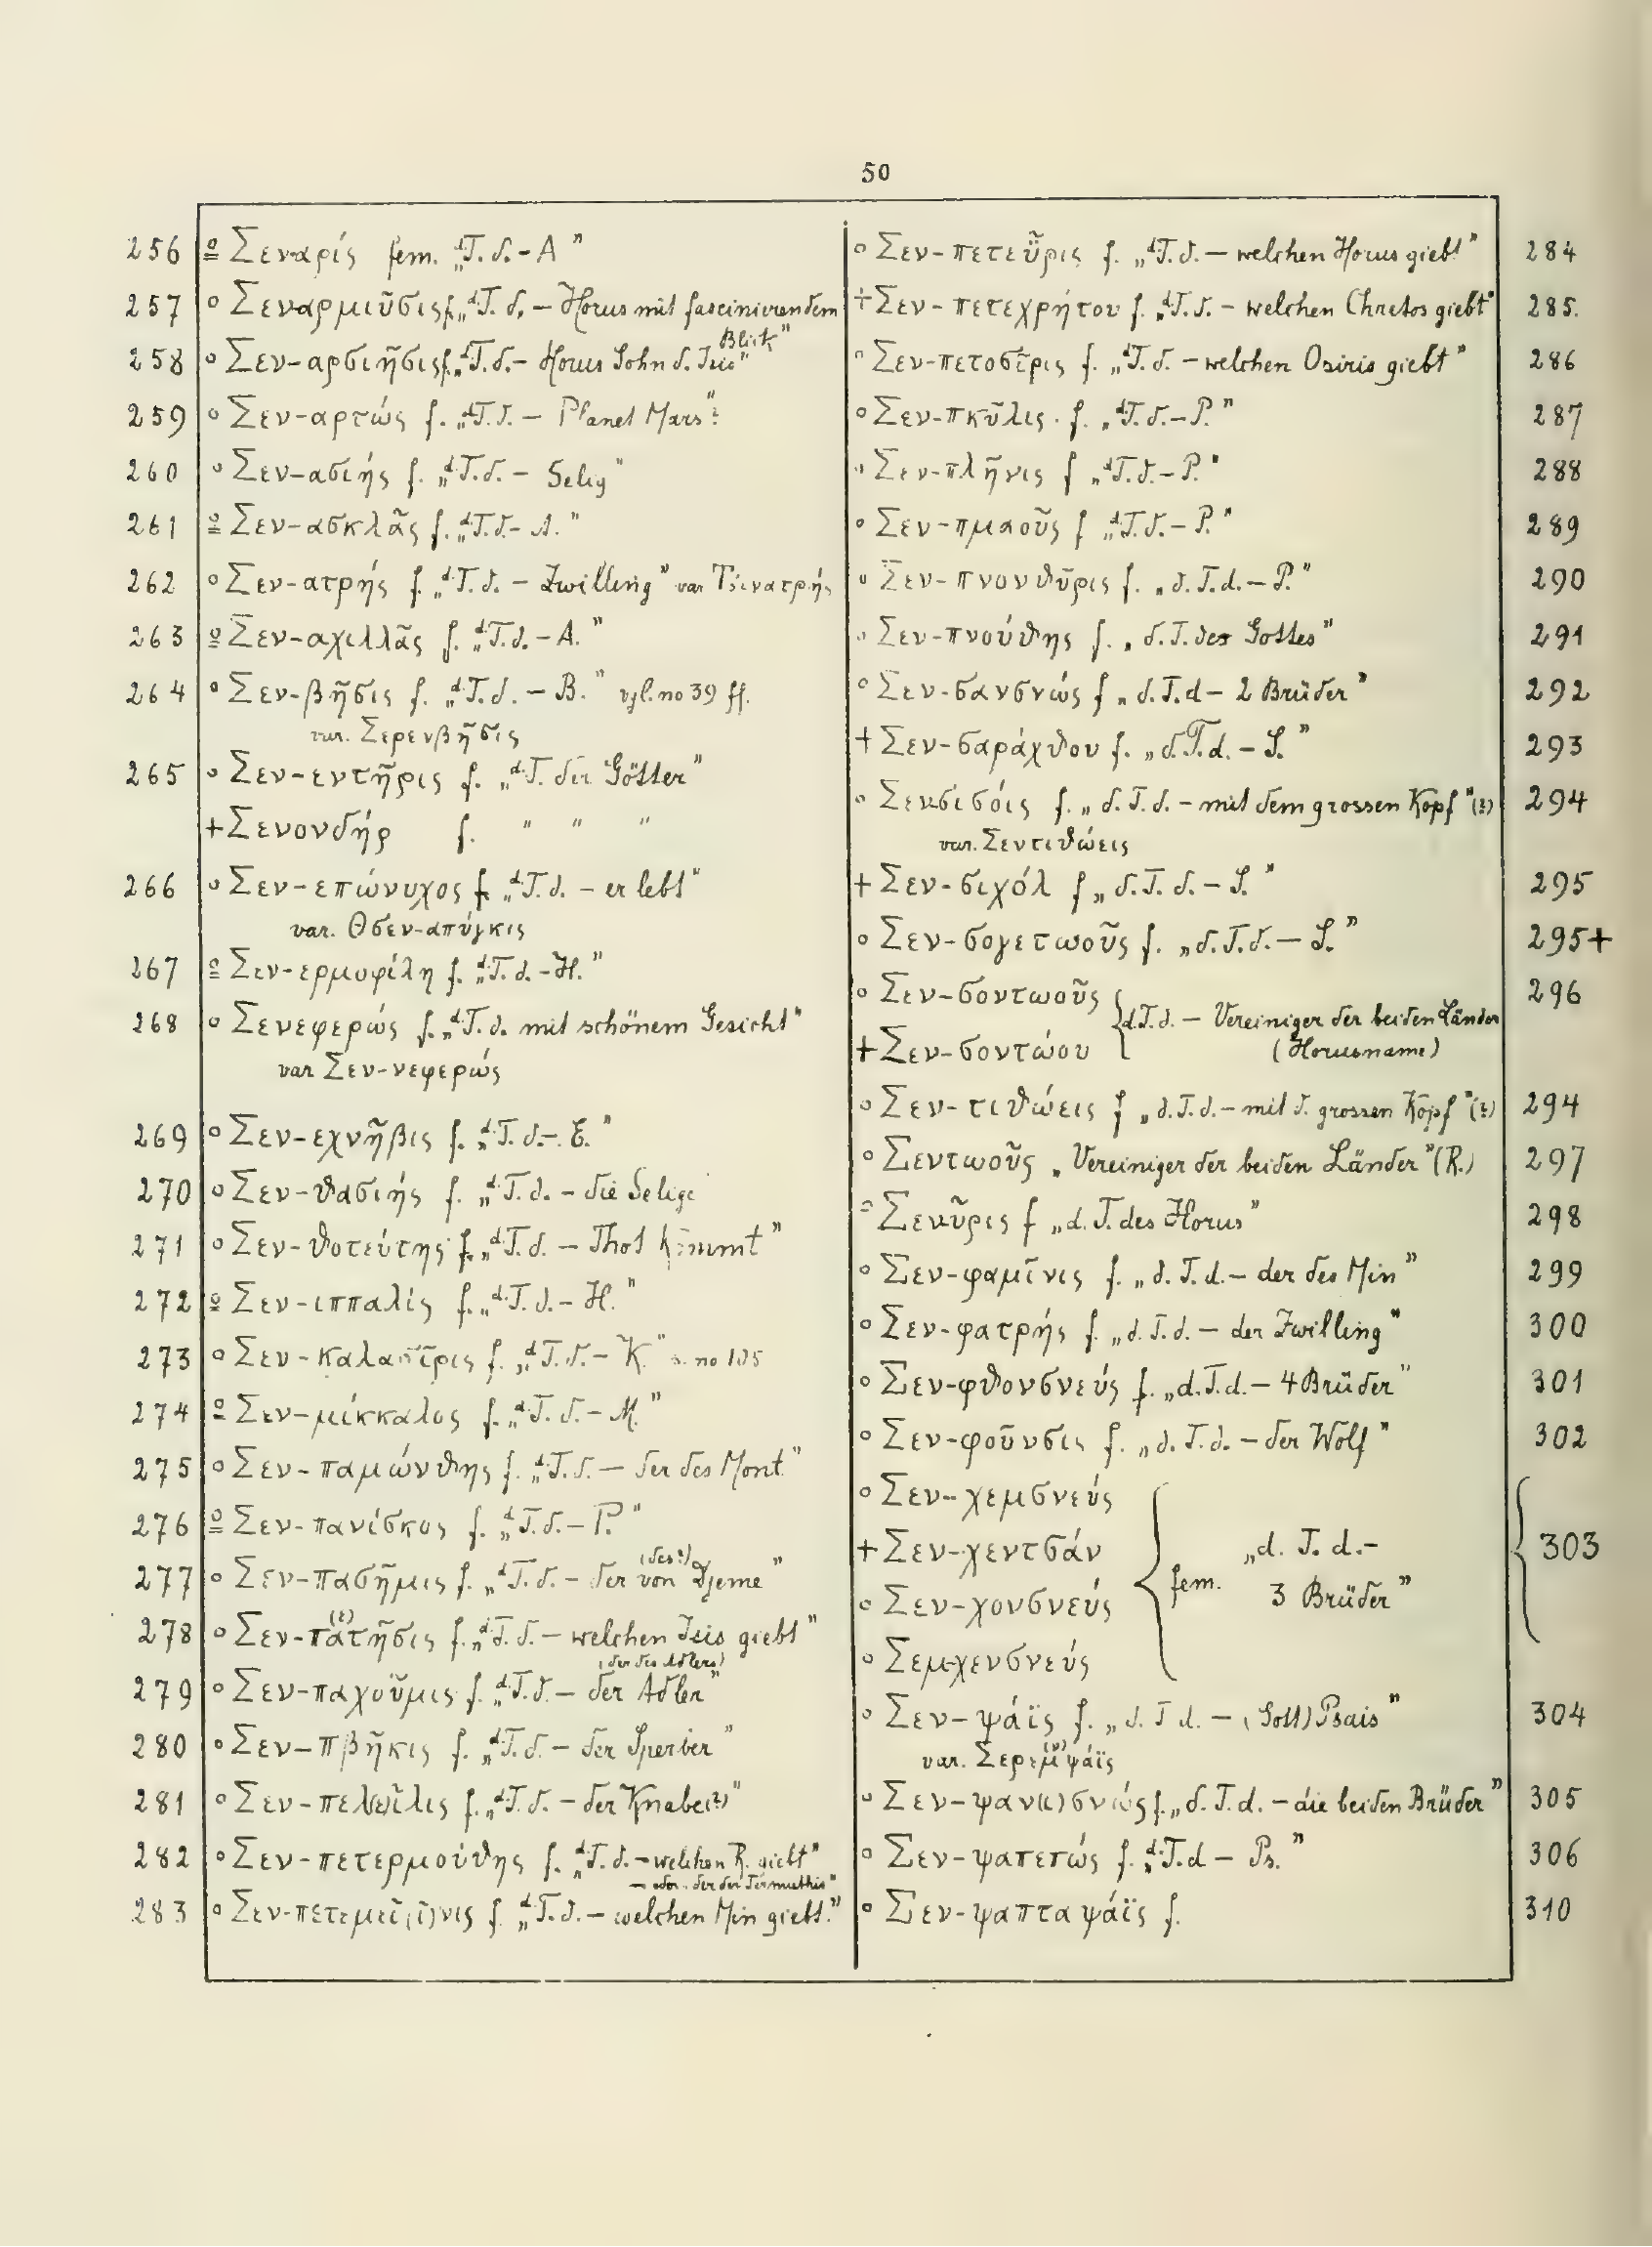 50
256 Σεναρίς fem. „d.T.d.-A"
257 Σεναρμιῦσις f. „d.T.d. – Horus mit fascinierendem
Blick"
258 Σεν-αρσιῆσις f. „d.T.d. – Horus Sohn d. Isis"
259 Σεν-αρτώς f. „d.T.d. – Planet Mars"?
260 Σεν-ασιής f. „d.T.d. – Selig"
261 Σεν-ασκλᾶς f. „d.T.d. – A."
262 Σεν-ατρής f. „d.T.d. – Zwilling" var Τσενατρής
263 Σεν-αχιλλᾶς f. „d.T.d. – A."
264 Σεν-βῆσις f. „d.T.d. – B." vgl. no 39 ff.
var. Σερενβῆσις
265 Σεν-εντῆρις f. „d.T. der Götter"
+ Σενονδήρ f. " " "
266 Σεν-επώνυχος f. „d.T.d. – er lebt"
var. Θσεν-απύγκις
267 Σεν-ερμοφίλη f. „d.T.d. – H."
268 Σενεφερώς f. „d.T.d. mit schönem Gesicht"
var Σεν-νεφερώς
269 Σεν-εχνῆβις f. „d.T.d. – E."
270 Σεν-θασιής f. „d.T.d. – die Selige
271 Σεν-θοτεύτης f. „d.T.d. – Thot kommt"
272 Σεν-ιππαλίς f. „d.T.d. – H."
273 Σεν-καλασῖρις f. „d.T.d. – K." s. no 105
274 Σεν-μίκκαλος f. „d.T.d. – M."
275 Σεν-παμώνθης f. „d.T.d. – der des Mont"
276 Σεν-πανίσκος f. „d.T.d. – P."
277 Σεν-πασῆμις f. „d.T.d. – der von (des?) Djeme"
278 Σεν-πατῆσις (ε) f. „d.T.d. – welchen Isis giebt"
(der des Adlers)
279 Σεν-παχοῦμις f. „d.T.d. – der Adler"
280 Σεν-πβῆκις f. „d.T.d. – der Sperber"
281 Σεν-πελ(ε)ῖλις f. „d.T.d. – der Knabe(?)"
282 Σεν-πετερμούθης f. „d.T.d. – welchen R. giebt"
– oder der der Termuthis"
283 Σεν-πετεμεῖ(ῖ)νις f. „d.T.d. – welchen Min giebt."
Σεν-πετεῦρις f. „d.T.d. – welchen Horus giebt" 284
+ Σεν-πετεχρήτου f. „d.T.d. – welchen Chretos giebt" 285.
Σεν-πετοσῖρις f. „d.T.d. – welchen Osiris giebt" 286
Σεν-πκῦλις. f. „d.T.d. – P." 287
Σεν-πλῆνις f „d.T.d. – P." 288
Σεν-πμαοῦς f „d.T.d. – P." 289
Σεν-πνονθῦρις f. „d.T.d. – P." 290
Σεν-πνούθης f. „d.T. des Gottes" 291
Σεν-σανσνώς f „d.T.d – 2 Brüder" 292
+ Σεν-σαράχθου f. „d.T.d. – S." 293
Σενσισόις f. „d.T.d. – mit dem grossen Kopf"(?) 294
var. Σεντιθώεις
+ Σεν-σιχόλ f „d.T.d. – S." 295
Σεν-σογετωοῦς f. „d.T.d. – S." 295+
Σεν-σοντωοῦς 296
{d.T.d. – Vereiniger der beiden Länder
+ Σεν-σοντώου (Horusname)
Σεν-τιθώεις f „d.T.d. – mit d. grossen Kopf"(?) 294
Σεντωοῦς „Vereiniger der beiden Länder"(R.) 297
Σενῦρις f „d.T. des Horus" 298
Σεν-φαμῖνις f. „d.T.d. – der des Min" 299
Σεν-φατρής f. „d.T.d. – der Zwilling" 300
Σεν-φθονσνεύς f. „d.T.d. – 4 Brüder" 301
Σεν-φοῦνσις f. „d.T.d. – der Wolf" 302
Σεν-χεμσνεύς
+ Σεν-χεντσάν „d. T. d.- 303
Σεν-χονσνεύς fem. 3 Brüder"
Σεμ-χενσνεύς
Σεν-ψάϊς f. „d.T.d. – (Gott) Psais" 304
var. Σερεμ(ν)ψάϊς
Σεν-ψαν(ι)σνώς f. „d.T.d. – die beiden Brüder" 305
Σεν-ψατετώς f. „d.T.d – Ps." 306
Σεν-ψαπταψάϊς f. 310